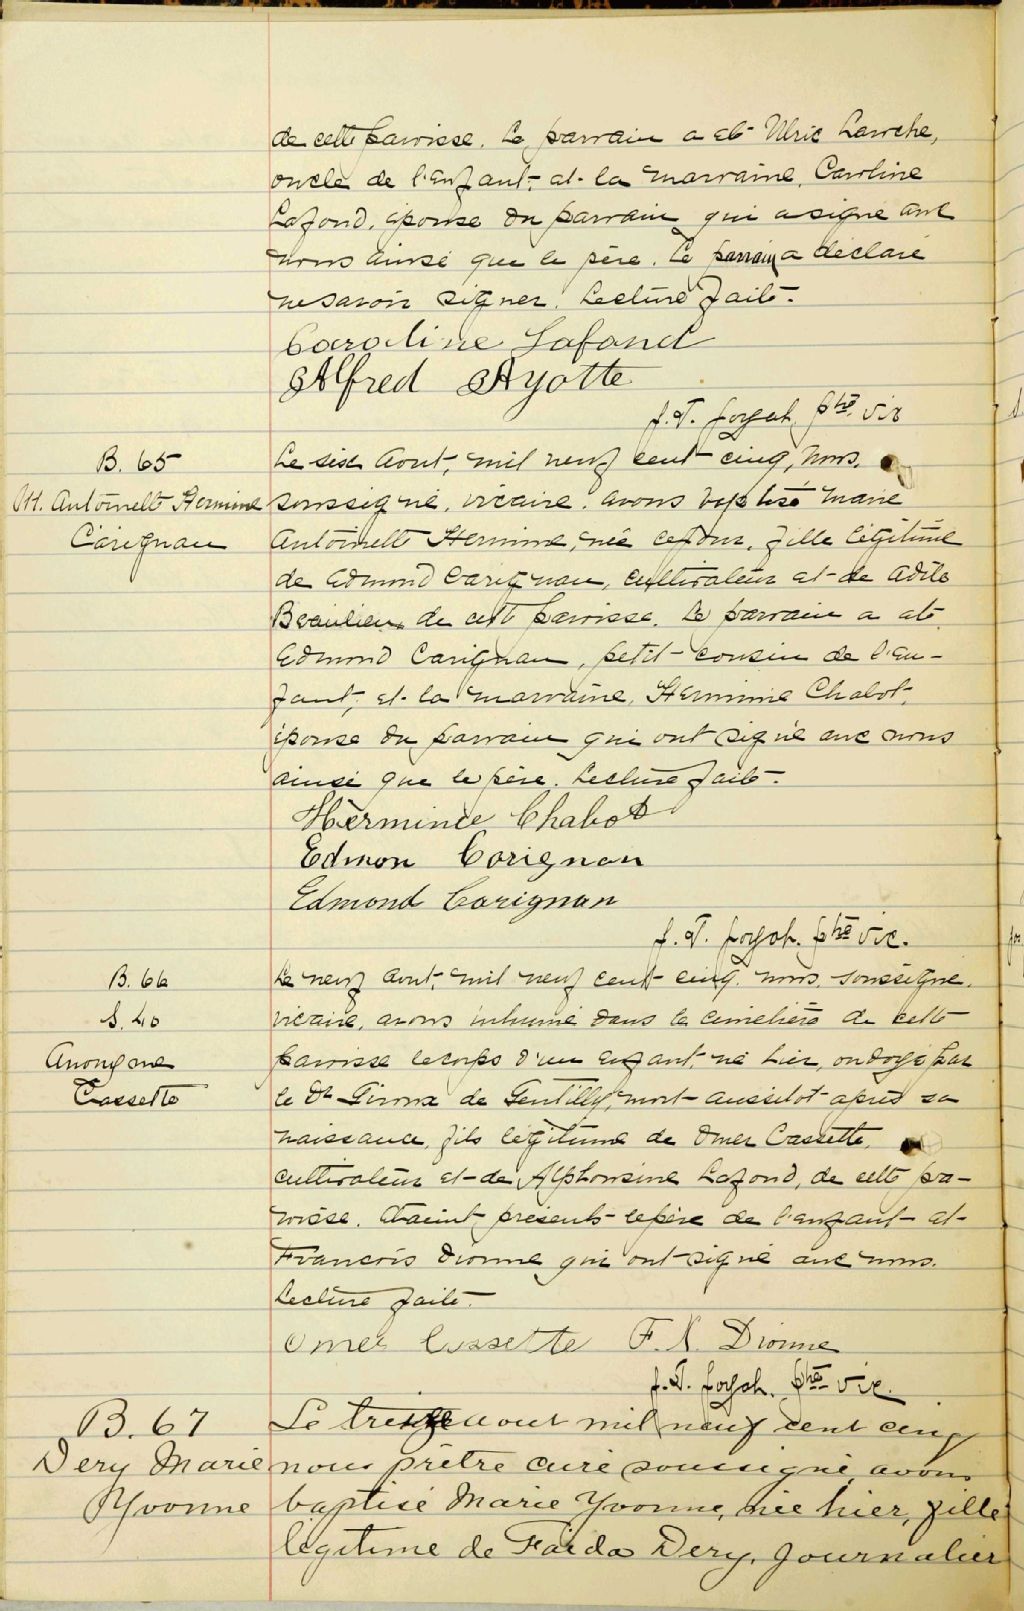 de cette paroisse. Le parrain a été Ulric Laroche,
oncle de l'enfant, et la marraine, Caroline
Lafond, épouse du parrain qui a signé avec
nous ainsi que le père. Le parrain a déclaré
ne savoir signer. Lecture faite.
Caroline Lafond
Alfred Ayotte
J. T. ptre vic
B. 65
M. Antoinette Hermine
Carignan
Le six Aout, mil neuf cent cinq, nous,
soussigné, vicaire, avons baptisé Marie
Antoinette Hermine, née ce jour, fille légitime
de Edmond Carignan, cultivateur et de Adèle
Beaulieu, de cette paroisse. Le parrain a été
Edmond Carignan, petit-cousin de l'en-
fant, et la marraine, Hermine Chabot,
épouse du parrain qui ont signé avec nous
ainsi que le père. Lecture faite.
Herminie Chabot
Edmon Carignan
Edmond Carignan
J. T. ptre vic.
B. 66
S. 40
Anonyme
Cassette
Le neuf Aout, mil neuf cent cinq, nous, soussigné,
vicaire, avons inhumé dans le cimetière de cette
paroisse le corps d'un enfant, né hier, ondoyé par
le Dr Giroux de Gentilly, mort aussitot après sa
naissance, fils légitime de Omer Cassette,
cultivateur et de Alphonsine Lafond, de cette pa-
roisse. Etaient présents le père de l'enfant et
François Dionne qui ont signé avec nous.
Lecture faite.
Omer Cossette F. X. Dionne
J. T. ptre vic.
B. 67
Dery Marie
Yvonne
Le treize aout mil neuf cent cinq
nous prêtre curé soussigné avons
baptisé Marie Yvonne, née hier, fille
légitime de Faida Dery, journalier